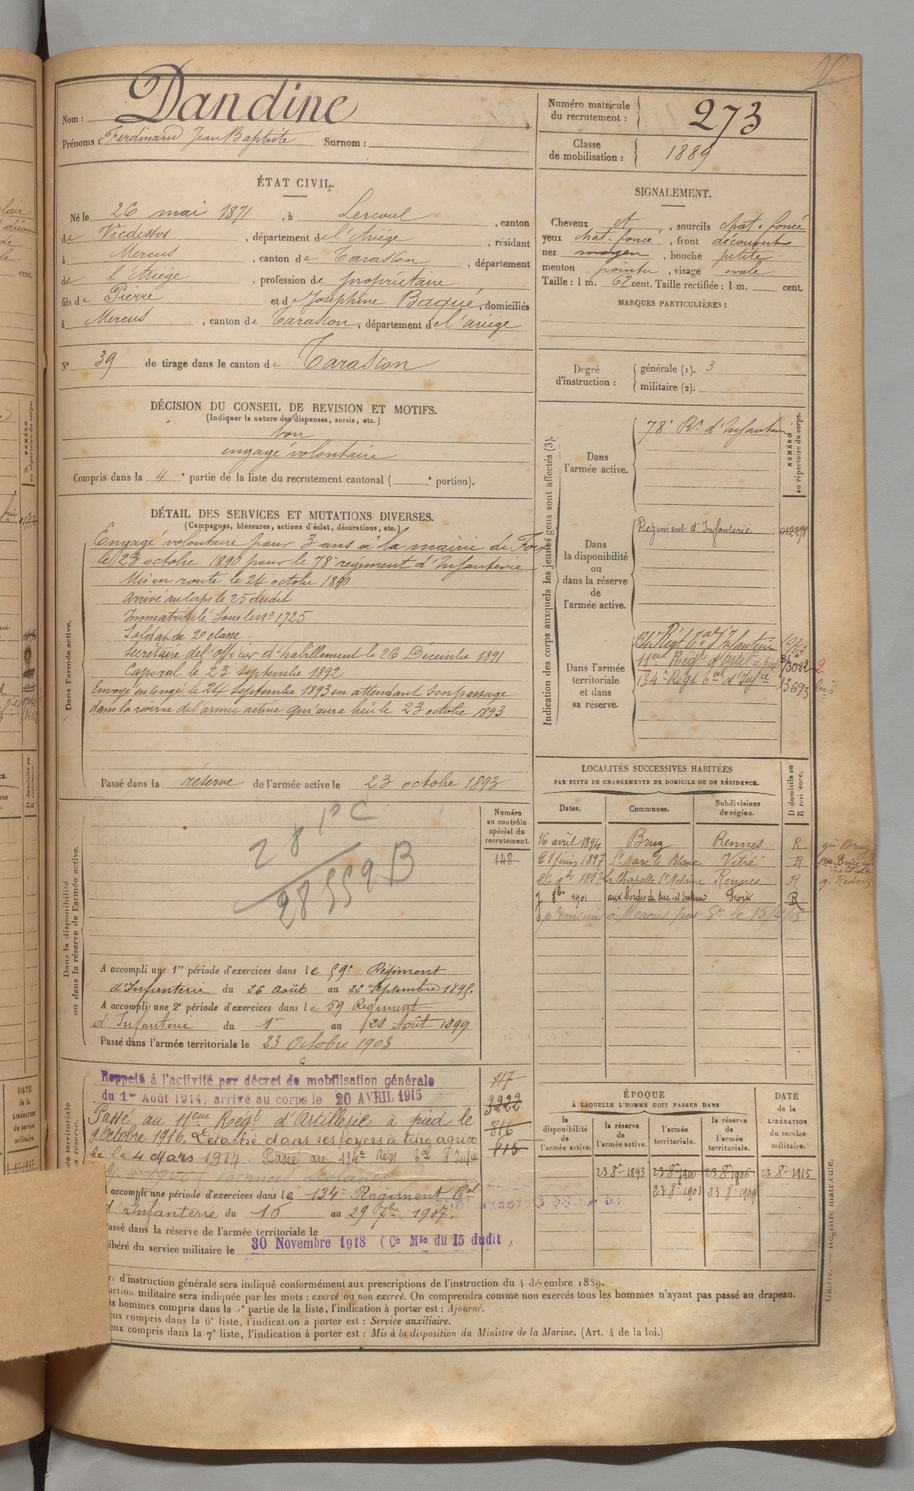 Nom : Dandine
Prénoms : Ferdinand Jean Baptiste Surnom :
Numéro matricule du recrutement : 273
Classe de mobilisation : 1889
ÉTAT CIVIL.
Né le 26 mai 1871, à Lercoul, canton
de Vicdessos, département de l'Ariège, résidant
à Mercus, canton de Tarascon, département
de l'Ariège, profession de propriétaire
fils de Pierre et de Joséphine Baqué, domiciliés
à Mercus, canton de Tarascon, département de l'ariège
N° 39 de tirage dans le canton de Tarascon
DÉCISION DU CONSEIL DE REVISION ET MOTIFS.
(Indiquer la nature des dispenses, sursis, etc.)
bon
engagé volontaire
Compris dans la 4e partie de la liste du recrutement cantonal ( e portion).
DÉTAIL DES SERVICES ET MUTATIONS DIVERSES.
(Campagnes, blessures, actions d'éclat, décorations, etc.)
Dans l'armée active.
Engagé volontaire pour 3 ans à la mairie de Foix
le 23 octobre 1890 pour le 78e régiment d'Infanterie
Mis en route le 24 octobre 1890
Arrivé au corps le 25 dudit
Immatriculé sous le n° 1725
Soldat de 2e classe
Secrétaire de l'officier d'habillement le 26 Décembre 1891
Caporal le 23 septembre 1892
Envoyé en congé le 24 Septembre 1893 en attendant son passage
dans la réserve de l'armée active qui aura lieu le 23 octobre 1893
Passé dans la réserve de l'armée active le 23 octobre 1893
Dans la disponibilité ou dans la réserve de l'armée active.
Numéro au contrôle spécial du recrutement.
148
28 1° C
28559 B
A accompli une 1re période d'exercices dans le 59e Régiment
d'Infanterie du 26 Août au 22 Septembre 1895
A accompli une 2e période d'exercices dans le 59 Régiment
d'Infanterie du 1er au 28 Août 1899
Passé dans l'armée territoriale le 23 Octobre 1903
Rappelé à l'activité par décret de mobilisation générale
du 1er Août 1914, arrivé au corps le 20 AVRIL 1915
Passé au 11ème Régt d'Artillerie à pied le
9 Octobre 1916. Détaché dans ses foyers à titre agrico
le le 4 Mars 1917. Passé au 134e Régt tal d'Infie
accompli une période d'exercices dans le 134e Régiment tal
d'Infanterie du 16 au 29 7bre 1907.
Passé dans la réserve de l'armée territoriale le
libéré du service militaire le 30 Novembre 1918 (Ce Mle du 15 dudit
117
3222
816
SIGNALEMENT.
Cheveux et, sourcils chat. foncé
yeux chat. foncé, front découvert
nez moyen, bouche petite
menton pointu, visage ovale
Taille : 1 m. 62 cent. Taille rectifiée : 1 m. cent.
MARQUES PARTICULIÈRES :
Degré d'instruction : générale (1). 3
militaire (2).
Indication des corps auxquels les jeunes gens sont affectés (3).
NUMÉRO au répertoire du corps.
Dans l'armée active. 78e Rt d'Infanterie
Dans la disponibilité ou dans la réserve de l'armée active. Régiment d'Infanterie
Dans l'armée territoriale et dans sa réserve.
134e Régt tal d'Infanterie
11ème Régt d'Artel à pied
134e Régt tal d'Infie 13693
LOCALITÉS SUCCESSIVES HABITÉES
PAR SUITE DE CHANGEMENTS DE DOMICILE OU DE RÉSIDENCE.
Dates. Communes. Subdivisions de région. D domicile ou R résidence.
16 avril 1894 Bruz Rennes R
21 juin 1897 St Marc le Blanc Vitré R
La Chapelle Rennes R
7 8bre 1901 aux Bordes de Foix R
à Mercus
ÉPOQUE
À LAQUELLE L'HOMME DOIT PASSER DANS
la disponibilité de l'armée active. la réserve de l'armée active. l'armée territoriale. la réserve de l'armée territoriale. DATE de la LIBÉRATION du service militaire.
23 8re 1893 23 8re 1900 23 8re 1906 23 8re 1915
23 8re 1903 23 8re 1909
d'instruction générale sera indiqué conformément aux prescriptions de l'instruction du 4 décembre 1889.
militaire sera indiquée par les mots : exercé ou non exercé. On comprendra comme non exercés tous les hommes n'ayant pas passé au drapeau.
hommes compris dans la 5e partie de la liste, l'indication à porter est : Ajourné.
compris dans la 6e liste, l'indication à porter est : Service auxiliaire.
compris dans la 7e liste, l'indication à porter est : Mis à la disposition du Ministre de la Marine. (Art. 4 de la loi.)